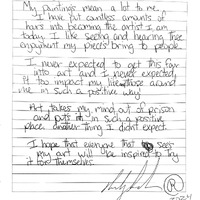 My paintings mean a lot to me,
I have put countless amounts of
hars into becoming the artist I am
today. I like seeing and hearing thee
enjoyment my pieces bring to people.
I never expected to get this far
into art and I never expected
it to impact my life & those around
me in such a positive way!
Art takes my mind out of prison
and puts it in such a positive
place another thing I didnt expect.
I hope that everyone that sees
my art will be inspired to try
it for themselves.
R